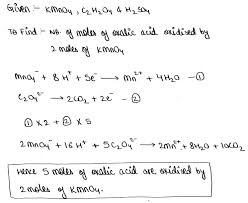 Given :- KMnO₄, C₂H₂O₄ & H₂SO₄
To Find :- No. of moles of oxalic acid oxidised by
2 moles of KMnO₄
MnO₄⁻ + 8H⁺ + 5e⁻ → Mn²⁺ + 4H₂O - ①
C₂O₄²⁻ → 2CO₂ + 2e⁻ - ②
① × 2 + ② × 5
2MnO₄⁻ + 16H⁺ + 5C₂O₄²⁻ → 2Mn²⁺ + 8H₂O + 10CO₂
Hence 5 moles of oxalic acid are oxidised by
2 moles of KMnO₄.